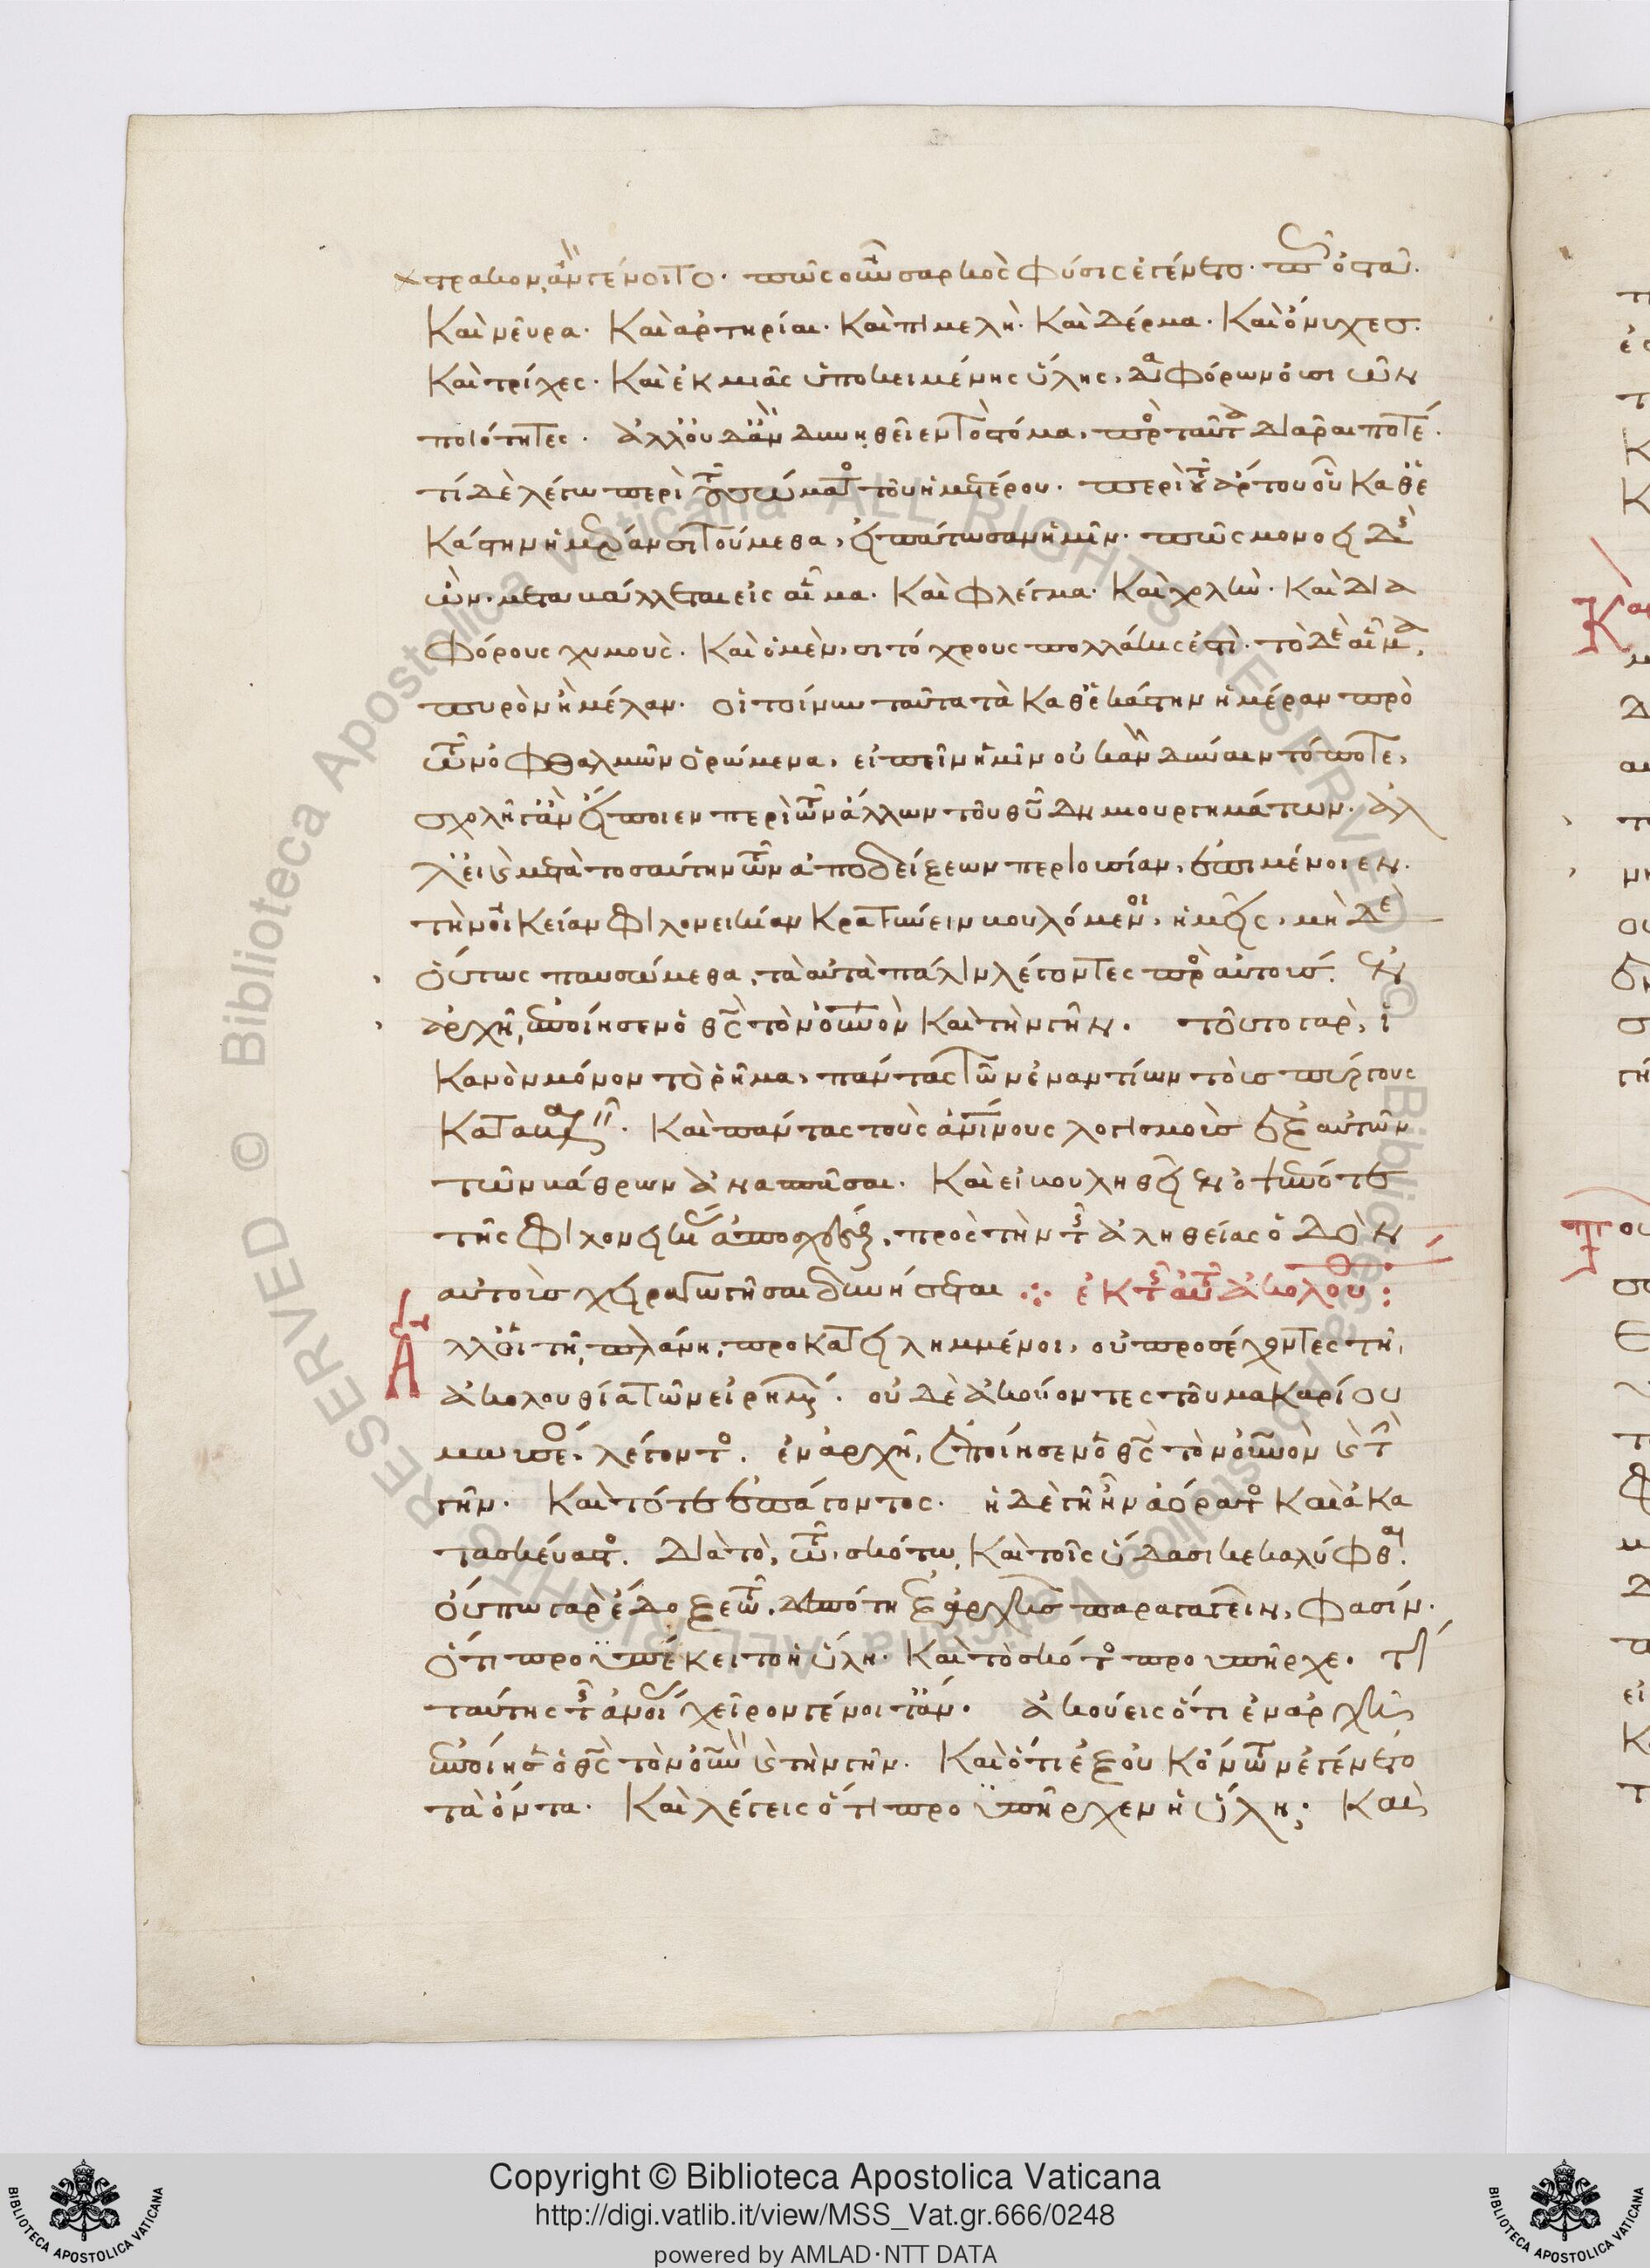 στρακον, ἂν γένοιτο. πῶς οὖν σαρκὸς φύσις ἐγένετο. πῶς ὀστᾶ.
καὶ νεῦρα. καὶ ἀρτηρίαι. καὶ πιμελή. καὶ δέρμα. καὶ ὄνυχες.
καὶ τρίχες. καὶ ἐκ μιᾶς ὑποκειμένης ὕλης, διαφόρων οὐσιῶν
ποιότητες. ἀλλ' οὐδ' ἂν δυνηθεῖεν τὸ στόμα, πρὸς ταῦτα διᾶραι ποτέ.
τί δὲ λέγω περὶ τοῦ σώματος τοῦ ἡμετέρου. περὶ τοῦ ἄρτου οὗ καθ' ἑ
κάστην ἡμέραν σιτούμεθα, εἰπάτωσαν ἡμῖν. πῶς μονοειδὴς
ὢν. μεταβάλλεται εἰς αἷμα. καὶ φλέγμα. καὶ χολὴν. καὶ δια
φόρους χυμούς. καὶ ὁ μὲν, σιτόχρους πολλάκις ἐστὶ. τὸ δὲ αἷμα,
πυρὸν ἢ μέλαν. οἱ τοίνυν ταῦτα τὰ καθ' ἑκάστην ἡμέραν πρὸ
τῶν ὀφθαλμῶν ὁρώμενα, εἰπεῖν ἡμῖν οὐκ ἂν δύναιντό ποτε,
σχολῇ γ' ἂν εἴποιεν περὶ τῶν ἄλλων τοῦ θυ δημιουργημάτων. ἀλ
λ' εἰ καὶ μετὰ τοσαύτην τῶν ἀποδείξεων περιουσίαν, ἐπιμένοιεν
τὴν οἰκείαν φιλονεικίαν κρατύνειν βουλόμενοι, ἡμεῖς, μηδὲ
οὕτως παυσώμεθα, τὰ αὐτὰ πάλιν λέγοντες πρὸς αὐτούς. ἐν
ἀρχῇ, ἐποίησεν ὁ θς τὸν οὐνον καὶ τὴν γῆν. τοῦτο γὰρ, ἱ
κανὸν μόνον τὸ ῥῆμα, πάντας τῶν ἐναντίων τοὺς πύργους
καταστρέψαι. καὶ πάντας τοὺς ἀνθρωπίνους λογισμοὺς ἐξ αὐτῶν
τῶν βάθρων ἀνασπᾶσαι. καὶ εἰ βουληθεῖεν ὀψέποτε
τῆς φιλονεικίας ἀποσχέσθαι, πρὸς τὴν τῆς ἀληθείας ὁδὸν
αὐτοὺς χειραγωγῆσαι δυνήσεται ⁘ ἐκ τῆς αὐτῆς ἀκολουθίας:
Ἀλλ' οἱ τῇ πλάνῃ, προκατειλημμένοι, οὐ προσέχοντες τῇ
ἀκολουθίᾳ τῶν εἰρημένων. οὐδὲ ἀκούοντες τοῦ μακαρίου
μωυσέως λέγοντος. ἐν ἀρχῇ, ἐποίησεν ὁ θς τὸν οὐνον καὶ τὴν
γῆν. καὶ τότε ἐπάγοντος. ἡ δὲ γῆ ἦν ἀόρατος καὶ ἀκα
τασκεύαστος. διὰ τὸ, τῷ σκότῳ, καὶ τοῖς ὕδασι κεκαλύφθαι.
οὕτω γὰρ ἔδοξε τῷ δεσπότῃ ἐξ ἀρχῆς παραγαγεῖν, φασίν.
ὅτι προϋπέκειτο ἡ ὕλη. καὶ τὸ σκότος προϋπῆρχε. τί
ταύτης τῆς ἀνοίας χεῖρον γένοιτ' ἄν. ἀκούεις ὅτι ἐν ἀρχῇ
ἐποίησεν ὁ θς τὸν οὐνον καὶ τὴν γῆν. καὶ ὅτι ἐξ οὐκ ὄντων ἐγένετο
τὰ ὄντα. καὶ λέγεις ὅτι προϋπῆρχεν ἡ ὕλη; καὶ
Copyright © Biblioteca Apostolica Vaticana
http://digi.vatlib.it/view/MSS_Vat.gr.666/0248
powered by AMLAD·NTT DATA